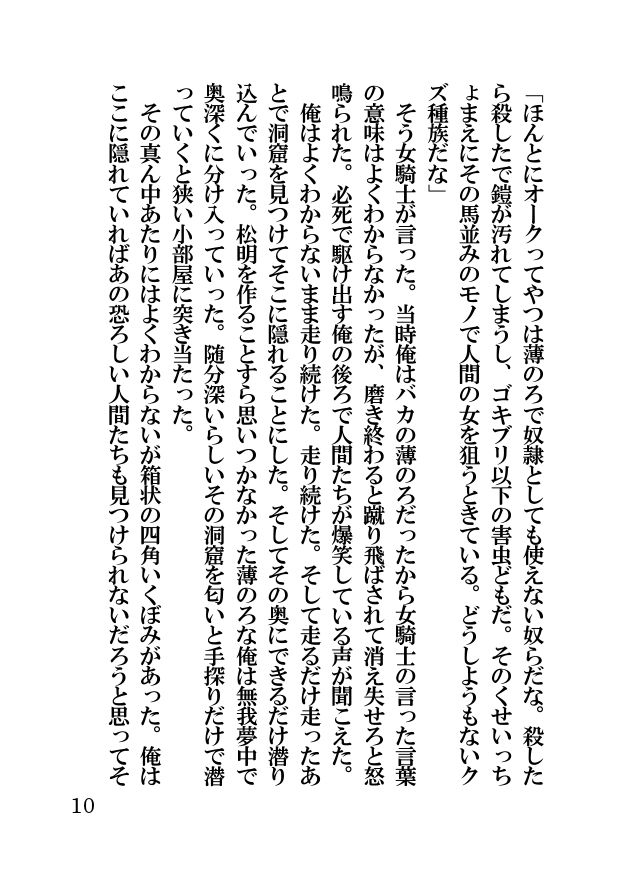 「ほんとにオークってやつは薄のろで奴隷としても使えない奴らだな。殺した
ら殺したで鎧が汚れてしまうし、ゴキブリ以下の害虫どもだ。そのくせいっち
ょまえにその馬並みのモノで人間の女を狙うときている。どうしようもないク
ズ種族だな」
　そう女騎士が言った。当時俺はバカの薄のろだったから女騎士の言った言葉
の意味はよくわからなかったが、磨き終わると蹴り飛ばされて消え失せろと怒
鳴られた。必死で駆け出す俺の後ろで人間たちが爆笑している声が聞こえた。
　俺はよくわからないまま走り続けた。走り続けた。そして走るだけ走ったあ
とで洞窟を見つけてそこに隠れることにした。そしてその奥にできるだけ潜り
込んでいった。松明を作ることすら思いつかなかった薄のろな俺は無我夢中で
奥深くに分け入っていった。随分深いらしいその洞窟を匂いと手探りだけで潜
っていくと狭い小部屋に突き当たった。
　その真ん中あたりにはよくわからないが箱状の四角いくぼみがあった。俺は
ここに隠れていればあの恐ろしい人間たちも見つけられないだろうと思ってそ
10